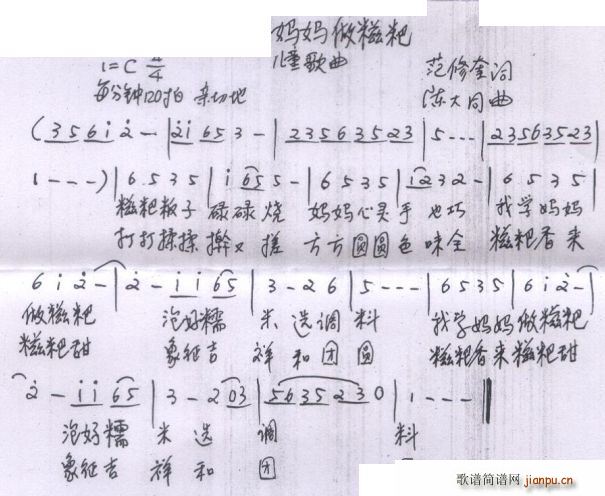 妈妈做糍粑
儿童歌曲
1=C 4/4
范修奎词
每分钟120拍 亲切地
陈大同曲
(3 5 6 i 2 - | 2 i 6 5 3 - | 2 3 5 6 3 5 2 3 | 5 - - - | 2 3 5 6 3 5 2 3 |
1 - - -) | 6 5 3 5 | i 6 5 5 - | 6 5 3 5 | i 2 3 2 - | 6 5 3 5 |
糍粑 子 碌碌烧 妈妈心灵手也巧 我学妈妈
打打揉揉 又搓 方方圆圆色味全 糍粑香来
6 i 2 - | 2 - i i 6 5 | 3 - 2 6 | 5 - - - | 6 5 3 5 | 6 i 2 - |
做糍粑 泡好糯 米 选调 料 我学妈妈做糍粑
糍粑甜 象征吉 祥 和团 圆 糍粑香来糍粑甜
2 - i i 6 5 | 3 - 2 0 3 | 5 6 3 5 2 3 0 | 1 - - - ‖
泡好糯 米 选 调 料
象征吉 祥 和 团
歌谱简谱网
jianpu.cn